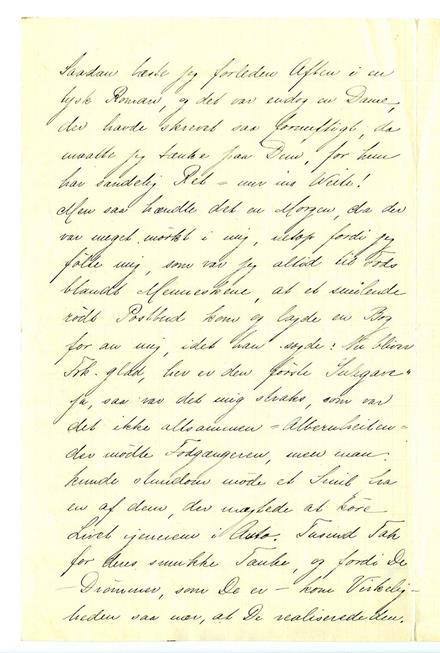 Saadan læste jeg forleden Aften i en
tysk Roman, og det var endog en Dame,
der havde skrevet saa fornuftigt, da
maatte jeg tænke paa Dem, for hun
har sandelig Ret - nur ins Weite!
Men saa hændte det en Morgen, da der
var meget mörkt i mig, netop fordi jeg
fölte mig, som var jeg altid til Fods
blandt Menneskene, at et smilende
rödt Postbud kom og lagde en Bog
for an mig, idet han sagde: Nu bliver
Frk. glad, her er den förste Julegave"
Ja, saa var det mig straks, som var
det ikke allsammen - Albernheiten -
der mödte Fodgængeren, men man
kunde stundom möde et Smil fra
en af dem, der mægtede at köre
Livet igennem i Auto. Tusind Tak
for deres smukke Tanke, og fordi De
- Drömmer, som De er - kom Virkelig-
heden saa nær, at De realiserede den.